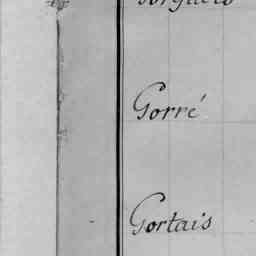 Gorré
Gortais